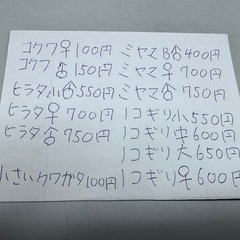 コクワ♀100円
コクワ♂150円
ヒラタ小♂550円
ヒラタ♀700円
ヒラタ♂750円
小さいクワガタ100円
ミヤマB♂400円
ミヤマ♀700円
ミヤマ♂750円
ノコギリ小550円
ノコギリ中600円
ノコギリ大650円
ノコギリ♀600円